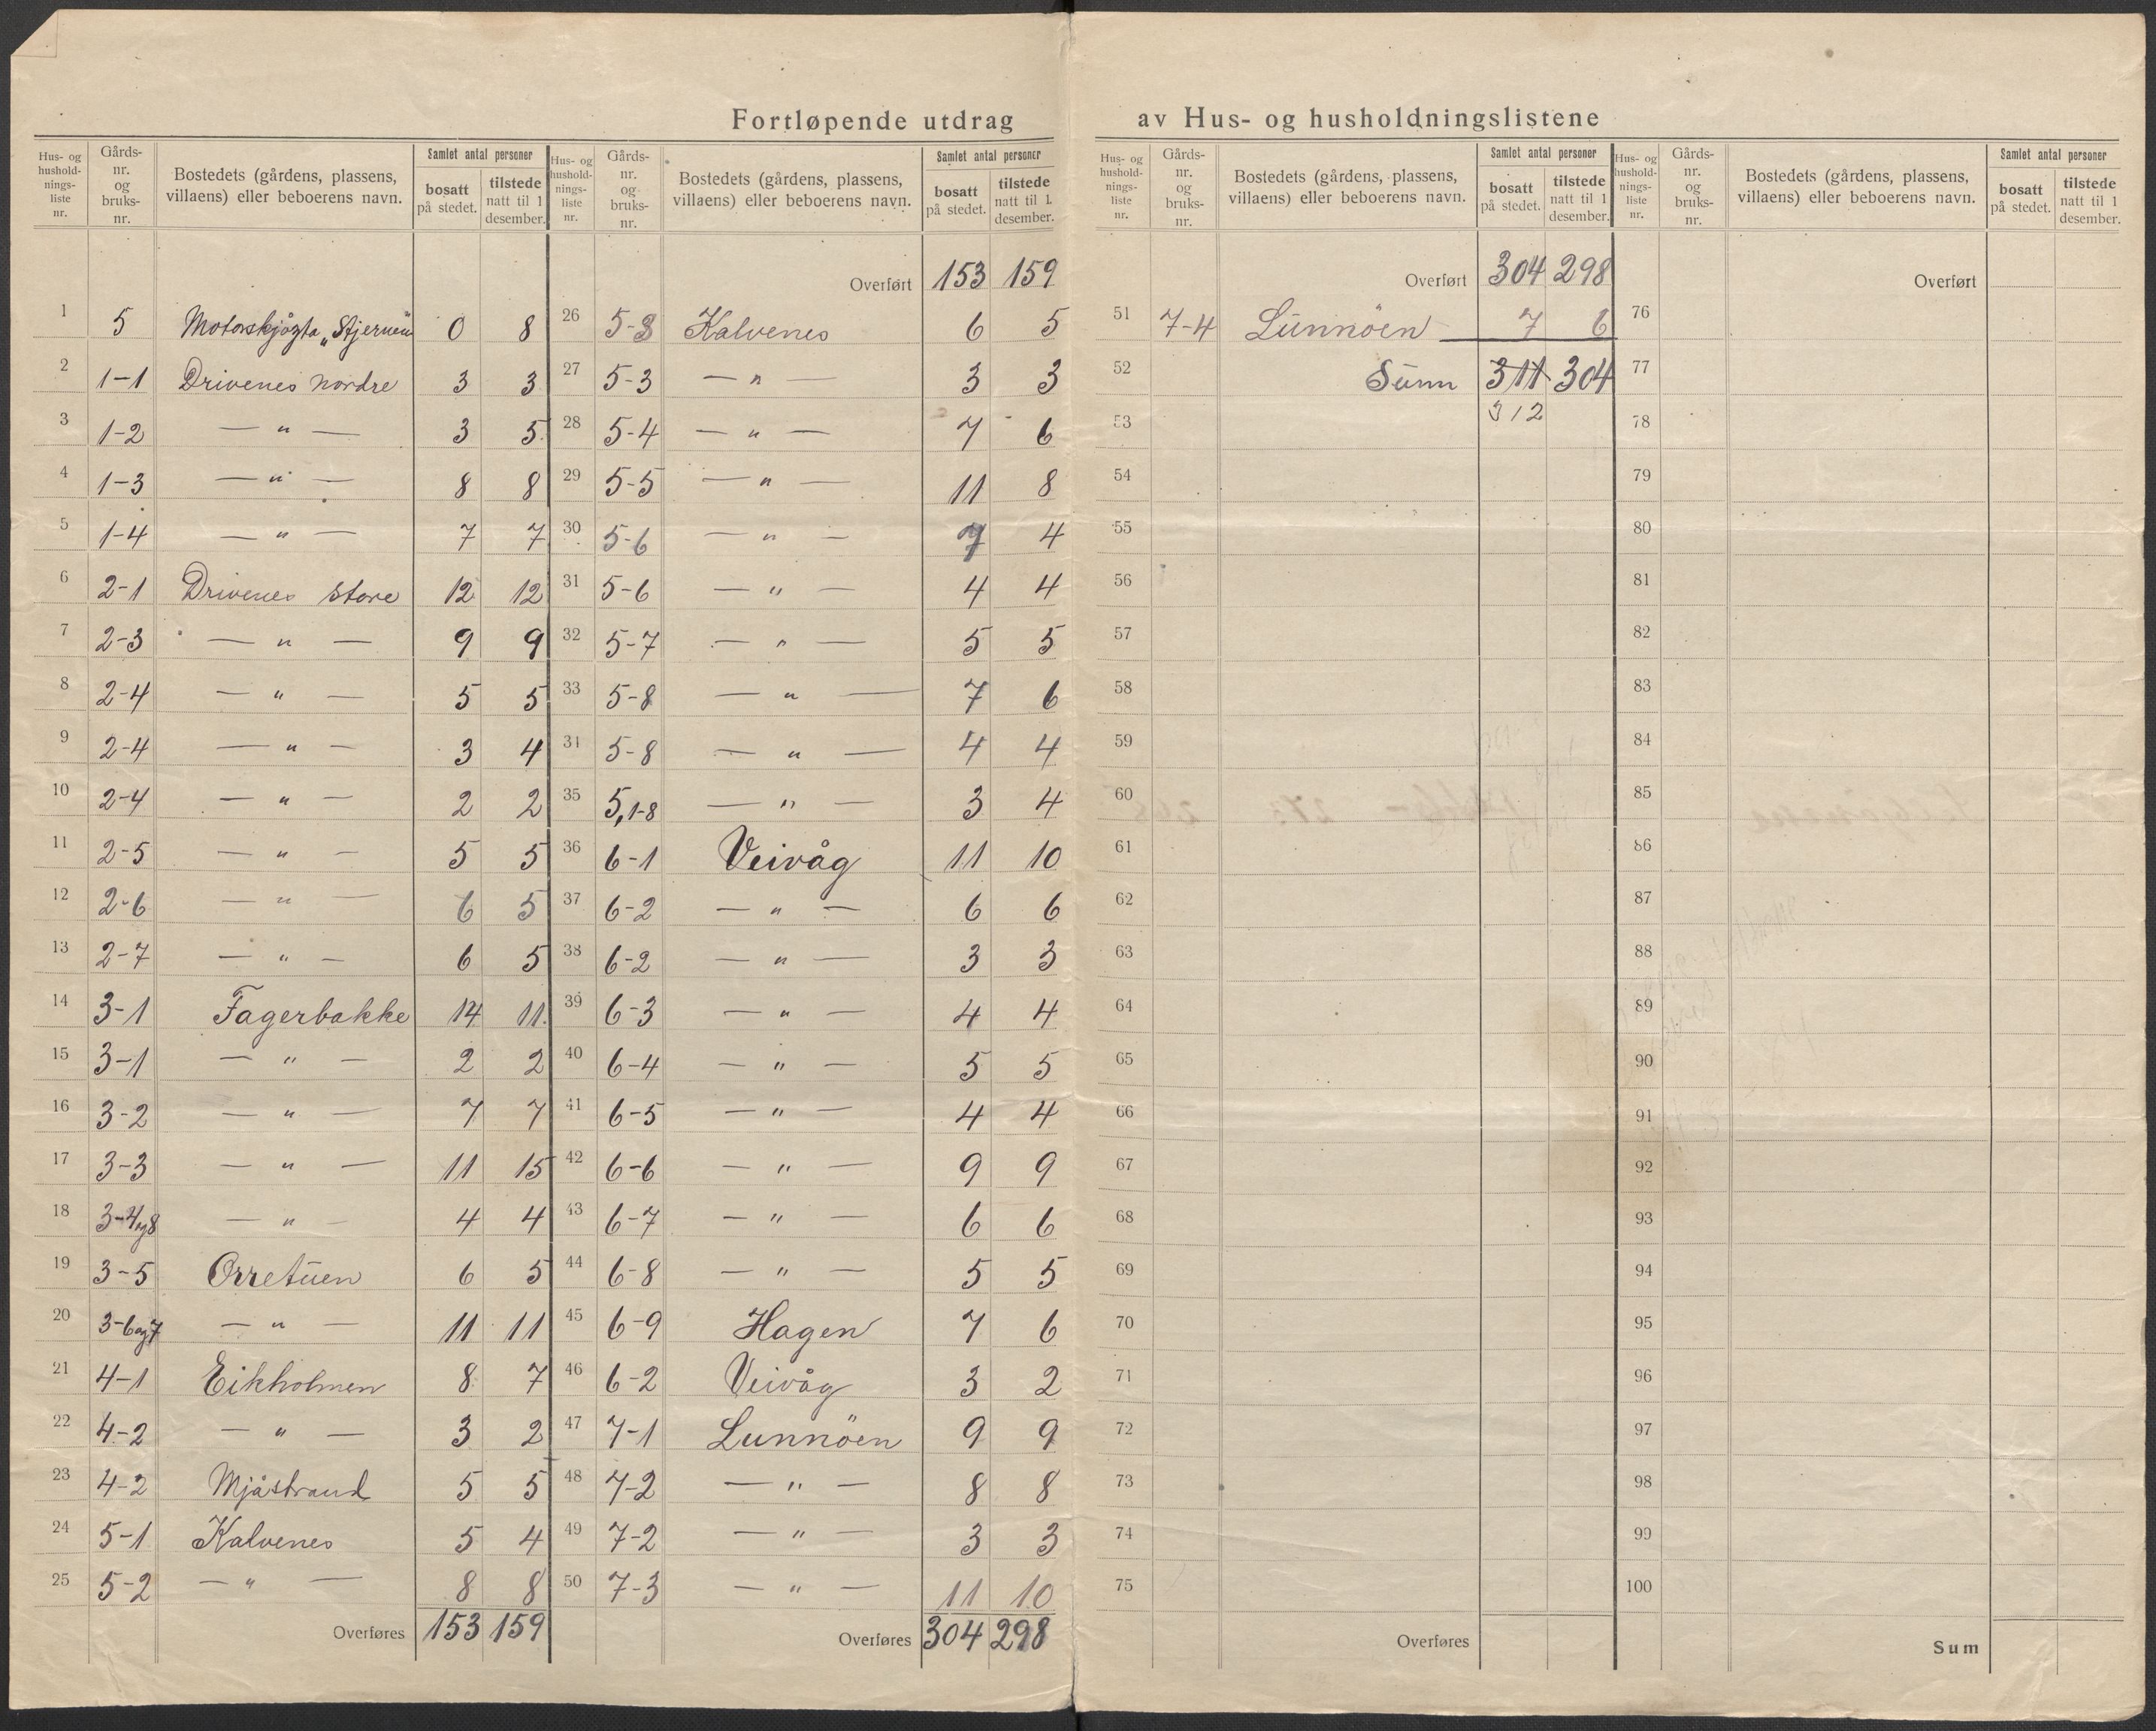 Fortløpende utdrag av Hus- og husholdningslistene
Hus- og hushold-nings-liste nr. Gårds-nr. og bruks-nr. Bostedets (gårdens, plassens, villaens) eller beboerens navn. Samlet antal personer bosatt på stedet. tilstede natt til 1 desember.
1 5 Motorskjøgta „Stjernen" 0 8
2 1-1 Drivenes nordre 3 3
3 1-2 — " — 3 5
4 1-3 — " — 8 8
5 1-4 — " — 7 7
6 2-1 Drivenes store 12 12
7 2-3 — " — 9 9
8 2-4 — " — 5 5
9 2-4 — " — 3 4
10 2-4 — " — 2 2
11 2-5 — " — 5 5
12 2-6 — " — 6 5
13 2-7 — " — 6 5
14 3-1 Fagerbakke 14 11
15 3-1 — " — 2 2
16 3-2 — " — 7 7
17 3-3 — " — 11 15
18 3-4og8 — " — 4 4
19 3-5 Orretuen 6 5
20 3-6og7 — " — 11 11
21 4-1 Eikholmen 8 7
22 4-2 — " — 3 2
23 4-2 Mjåstrand 5 5
24 5-1 Kalvenes 5 4
25 5-2 — " — 8 8
Overføres 153 159
Hus- og hushold-nings-liste nr. Gårds-nr. og bruks-nr. Bostedets (gårdens, plassens, villaens) eller beboerens navn. Samlet antal personer bosatt på stedet. tilstede natt til 1. desember.
Overført 153 159
26 5-3 Kalvenes 6 5
27 5-3 — " — 3 3
28 5-4 — " — 7 6
29 5-5 — " — 11 8
30 5-6 — " — 7 4
31 5-6 — " — 4 4
32 5-7 — " — 5 5
33 5-8 — " — 7 6
34 5-8 — " — 4 4
35 5,1-8 — " — 3 4
36 6-1 Veivåg 11 10
37 6-2 — " — 6 6
38 6-2 — " — 3 3
39 6-3 — " — 4 4
40 6-4 — " — 5 5
41 6-5 — " — 4 4
42 6-6 — " — 9 9
43 6-7 — " — 6 6
44 6-8 — " — 5 5
45 6-9 Hagen 7 6
46 6-2 Veivåg 3 2
47 7-1 Lunnöen 9 9
48 7-2 — " — 8 8
49 7-2 — " — 3 3
50 7-3 — " — 11 10
Overføres 304 298
Hus- og hushold-nings-liste nr. Gårds-nr. og bruks-nr. Bostedets (gårdens, plassens, villaens) eller beboerens navn. Samlet antal personer bosatt på stedet. tilstede natt til 1 desember.
Overført 304 298
51 7-4 Lunnöen 7 6
52 Sum 311 304
53 312
54
55
56
57
58
59
60
61
62
63
64
65
66
67
68
69
70
71
72
73
74
75
Overføres
Hus- og hushold-nings-liste nr. Gårds-nr. og bruks-nr. Bostedets (gårdens, plassens, villaens) eller beboerens navn. Samlet antal personer bosatt på stedet. tilstede natt til 1 desember.
Overført
76
77
78
79
80
81
82
83
84
85
86
87
88
89
90
91
92
93
94
95
96
97
98
99
100
Sum